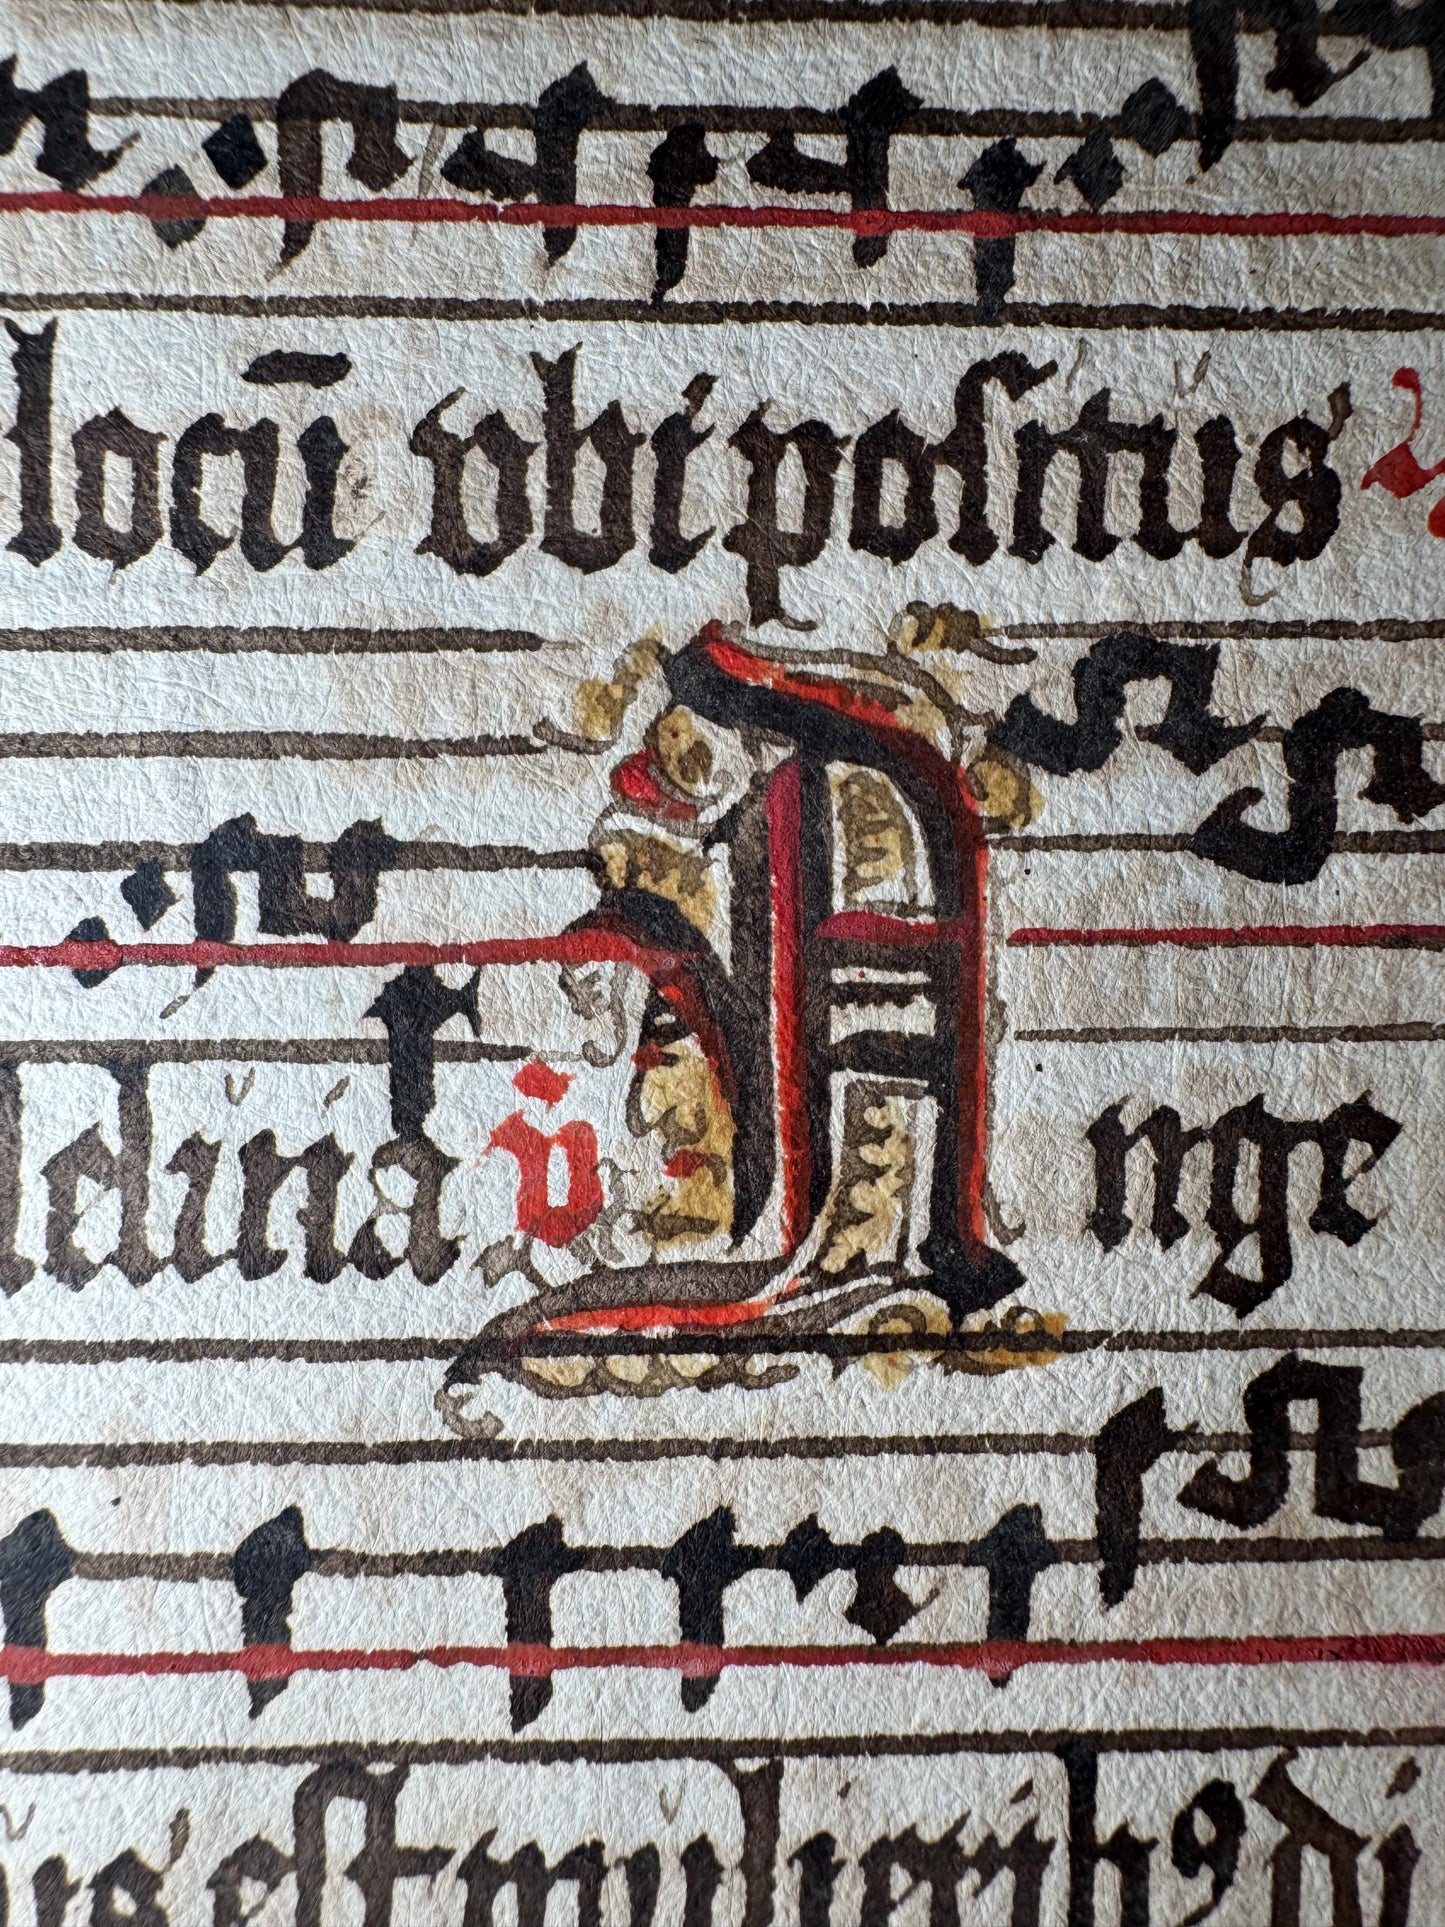 locū vbi poſitus
v̄ Ange
us eſt mulieribꝰ di